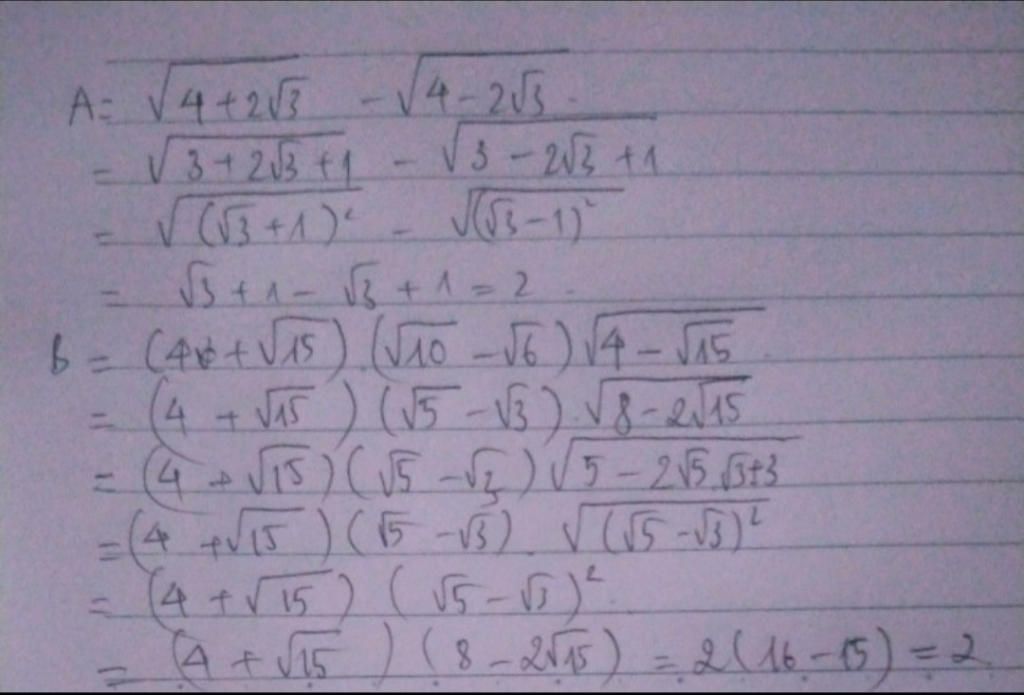 A = √(4 + 2√3) - √(4 - 2√3)
= √(3 + 2√3 + 1) - √(3 - 2√3 + 1)
= √((√3 + 1)²) - √((√3 - 1)²)
= √3 + 1 - √3 + 1 = 2.
B = (4 + √15).(√10 - √6)√(4 - √15)
= (4 + √15)(√5 - √3).√(8 - 2√15)
= (4 + √15)(√5 - √3)√(5 - 2√5.√3 + 3)
= (4 + √15)(√5 - √3).√((√5 - √3)²)
= (4 + √15)(√5 - √3)².
= (4 + √15)(8 - 2√15) = 2(16 - 15) = 2